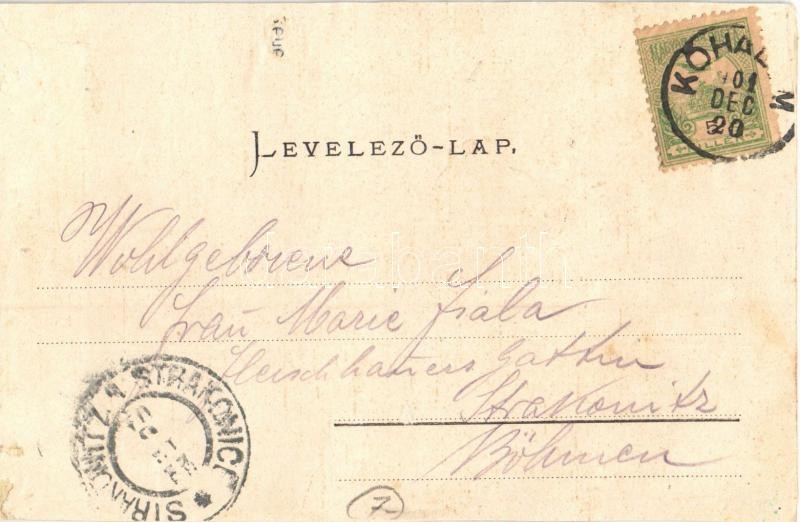 LEVELEZŐ-LAP.
KŐHAL M
901
DEC
20
FILLÉR
Wohlgeborene
Frau Marie Fiala
Fleischhauers Gattin
Strakonitz
Böhmen
STRAKONITZ 1 STRAKONICE
7